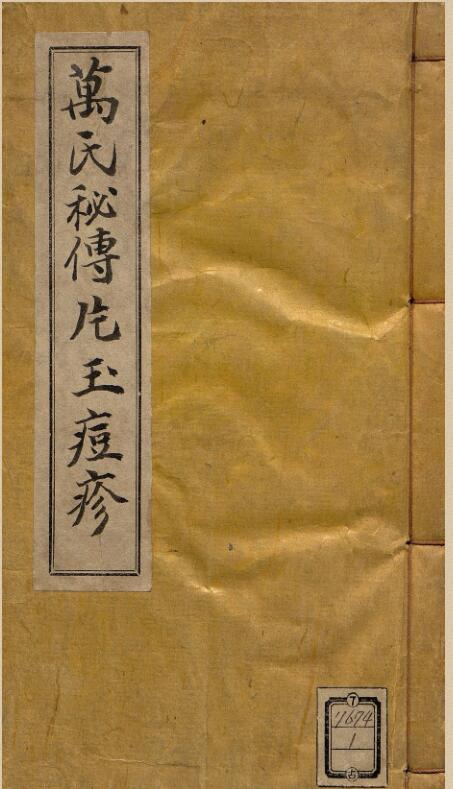 萬氏秘傳片玉痘疹
7
7674
1
占